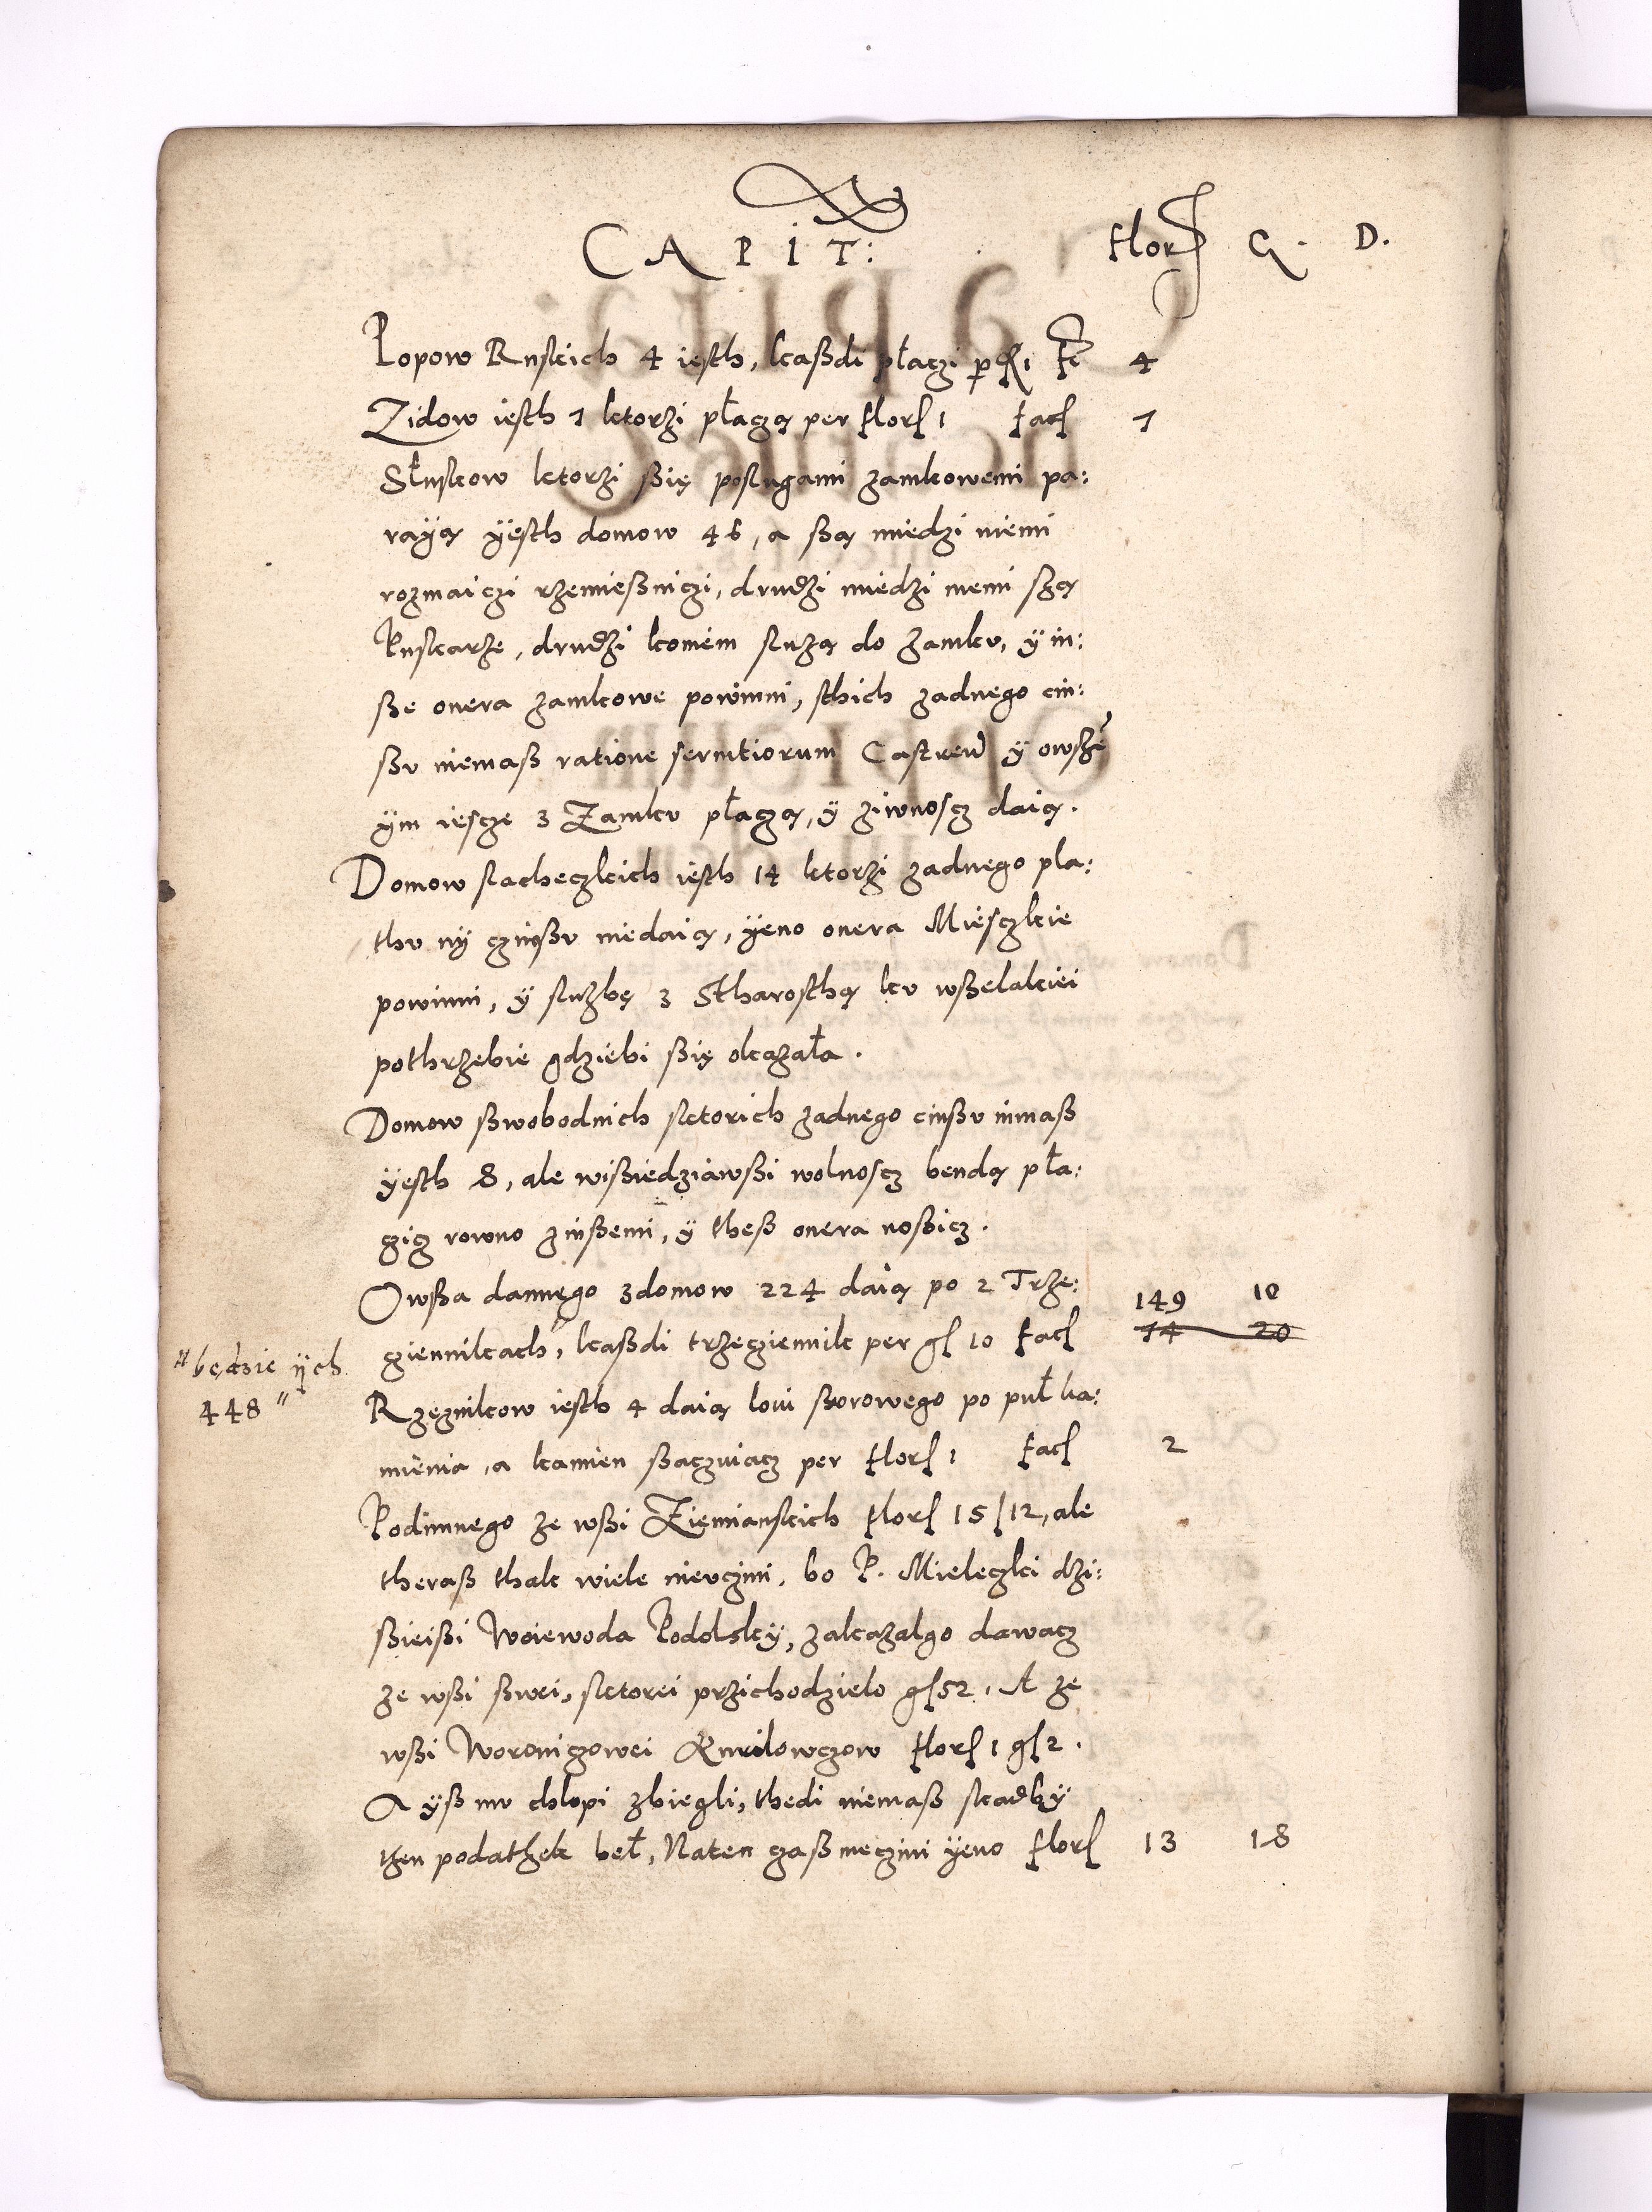 CAPIT: flor G. D.
Popow Ruskich 4 iesth, kaßdi płaczi per fl 1 fac 4
Zidow iesth 1 ktorzi płaczą per flor 1 fac 1
Słuskow ktorzi ßię poslugami zamkowemi pa:
raÿą ÿesth domow 46, a ßą miedzi niemi
rozmaiczi rzemießniczi, drudzi miedzi niemi szą
Puskarze, drudzi koniem sluzą do zamku, ÿ in:
ße onera zamkowe powinni, sthich zadnego cin:
ßu niemaß ratione seruitiorum Castren ÿ owsze
ÿm iescze 3 Zamku płaczą, ÿ ziwnoscz daią.
Domow slacheczkich iesth 14 ktorzi zadnego pla:
thu nÿ czinßu niedaią, ÿeno onera Miesczkie
powinni, ÿ sluzbę 3 Stharosthą ku wßelakiei
pothrzebie gdziebi ßię okazała.
Domow ßwobodnich sktorich zadnego cinßu nimaß
ÿesth 8, ale wißiedziawßi wolnoscz bendą pła:
czicz rowno zinßemi, ÿ theß onera noßicz.
Owßa dannego 3domow 224 daią po 2 Trze: 149 10
cziennikach, kaßdi trzecziennik per g 10 fac 74 20
"będzie ÿch
448"
Rzeznikow iesth 4 daią loiu ßorowego po puł ka:
mienia, a kamien ßaczuiacz per flor 1 fac 2
Podimnego ze wßi Ziemianskich flor 15/12, ale
theraß thak wiele nieuczini, bo P. Mieleczki dzi:
ßieißi Woiewoda Podolskÿ, zakazalgo dawacz
ze wßi ßwei, sktorei przichodzielo g 52, A ze
wßi Woroniczowei Kurilowczow flor 1 g 2.
A ÿß mu chlopi zbiegli, thedi niemaß skadbÿ
then podathek beł, Naten czaß nieczini ÿeno flor 13 18